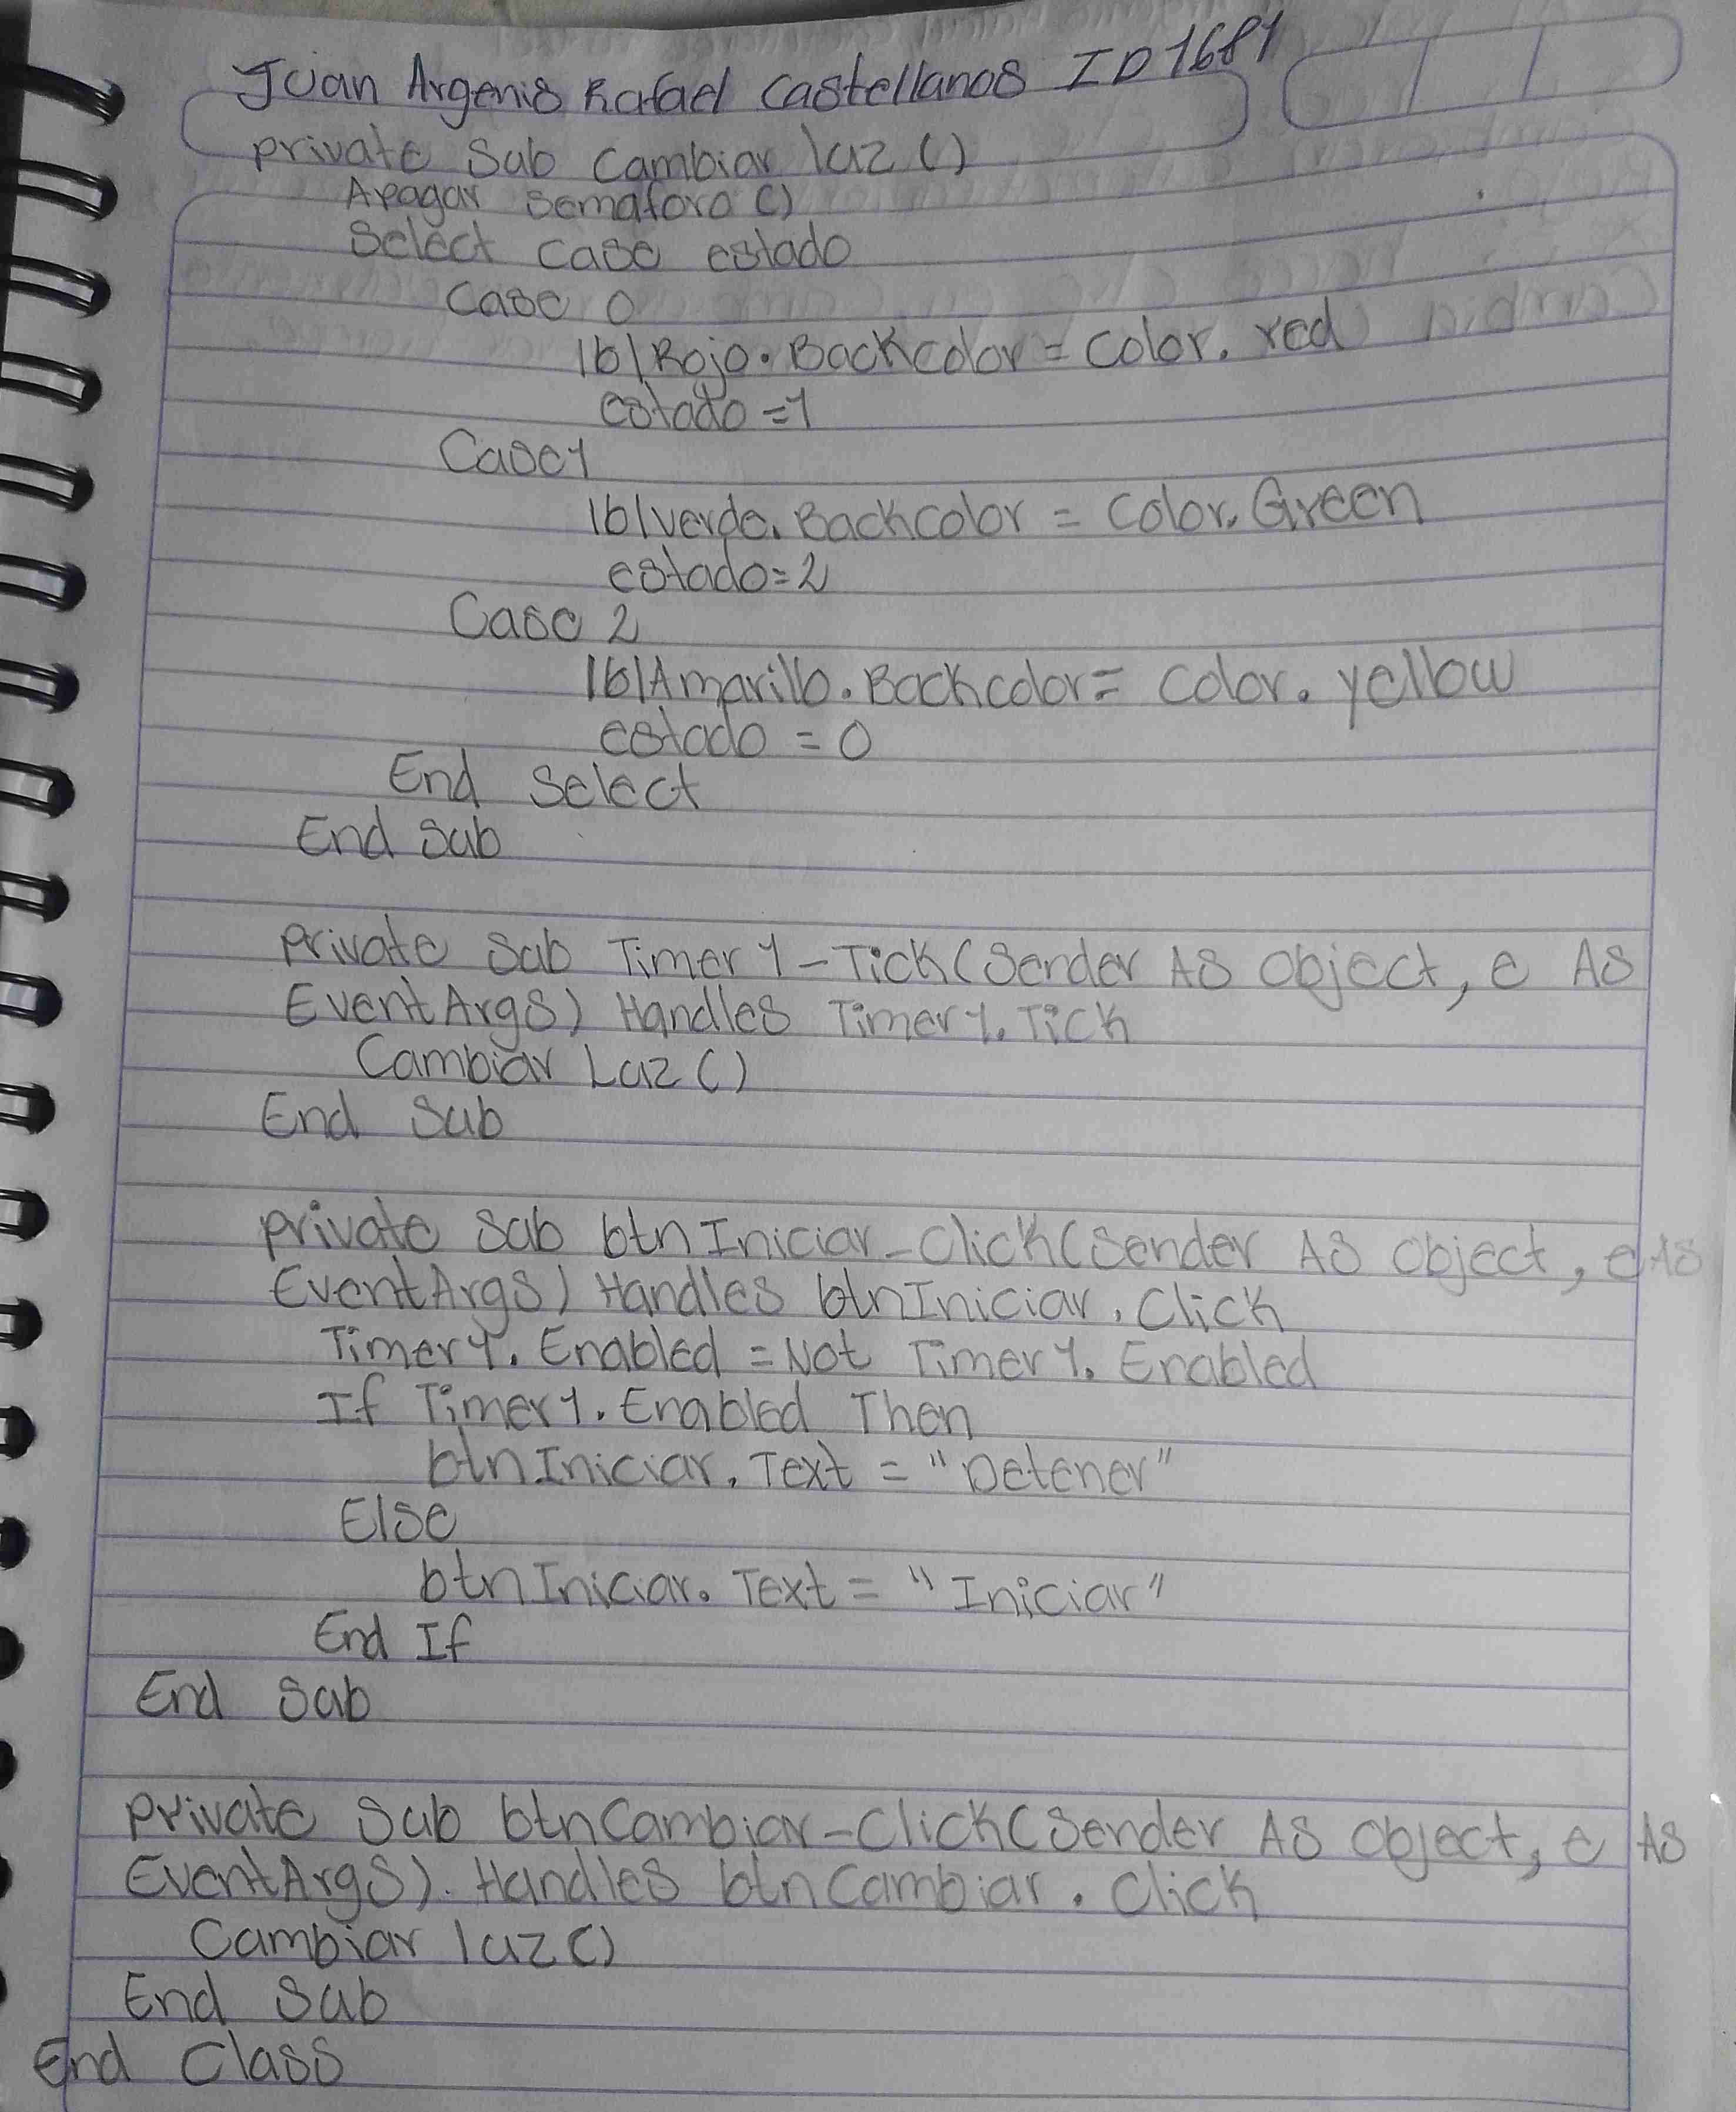 Juan Argenis Rafael Castellanos ID 1681
private Sub Cambiar luz ()
Apagar Semaforo ()
Select Case estado
Case 0
lblRojo.BackColor = Color.red
estado = 1
Case 1
lblverde.BackColor = Color.Green
estado = 2
Case 2
lblAmarillo.BackColor = Color.yellow
estado = 0
End Select
End Sub
Private Sub Timer1-Tick(Sender As Object, e As
EventArgs) Handles Timer1.Tick
Cambiar Luz ()
End Sub
private Sub btnIniciar-Click(Sender As Object, e As
EventArgs) Handles btnIniciar.Click
Timer1.Enabled = Not Timer1.Enabled
If Timer1.Enabled Then
btnIniciar.Text = "Detener"
Else
btnIniciar.Text = "Iniciar"
End If
End Sub
Private Sub btnCambiar-Click(Sender As Object, e As
EventArgs). Handles btnCambiar.Click
Cambiar luz ()
End Sub
End Class